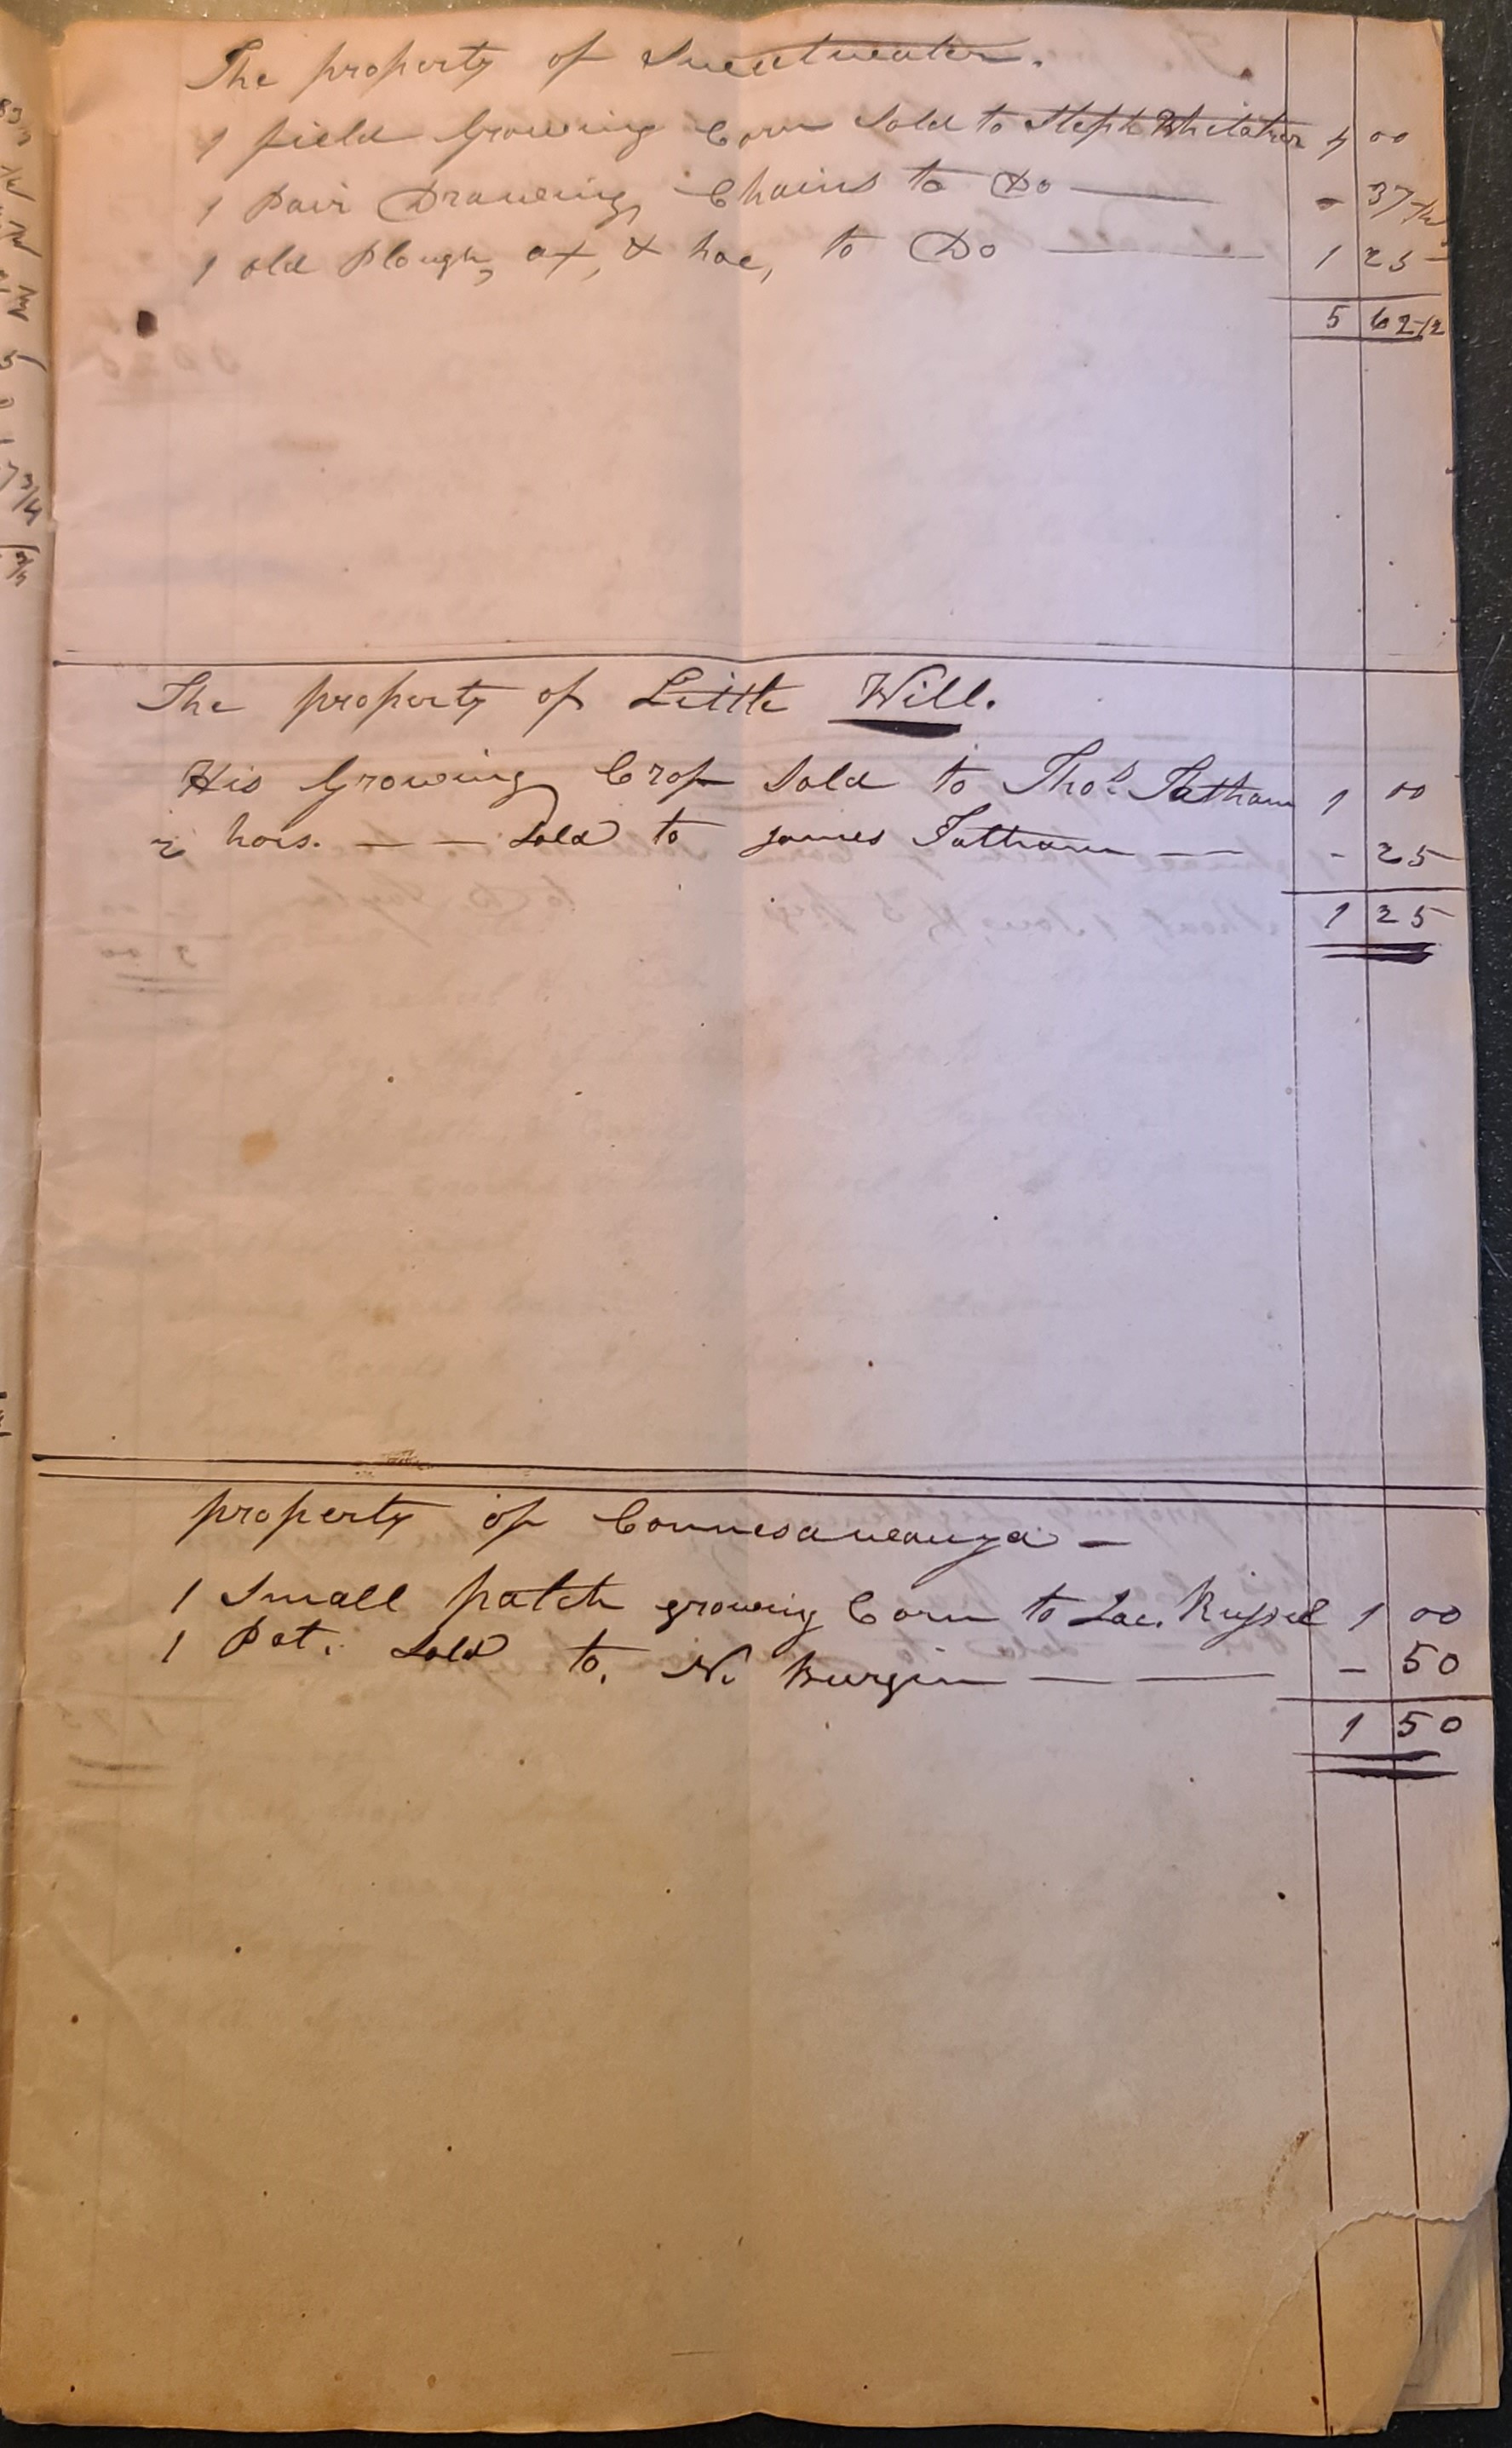 The property of Sweetwater.
1 field Growing Corn Sold to Steph Whitaker 4 00
1 Pair Drawing Chains to Do — - 37 1/2
1 old Plough, ax, & hoe, to Do — 1 25
5 62 1/2
The property of Little Will.
His Growing Crop Sold to Thos. Tatham 1 00
2 hoes. — — Sold to James Tatham — - 25
1 25
property of Connesaweauga —
1 Small patch growing Corn to Russel 1 00
1 Pot. Sold to. N. Burgin — — - 50
1 50